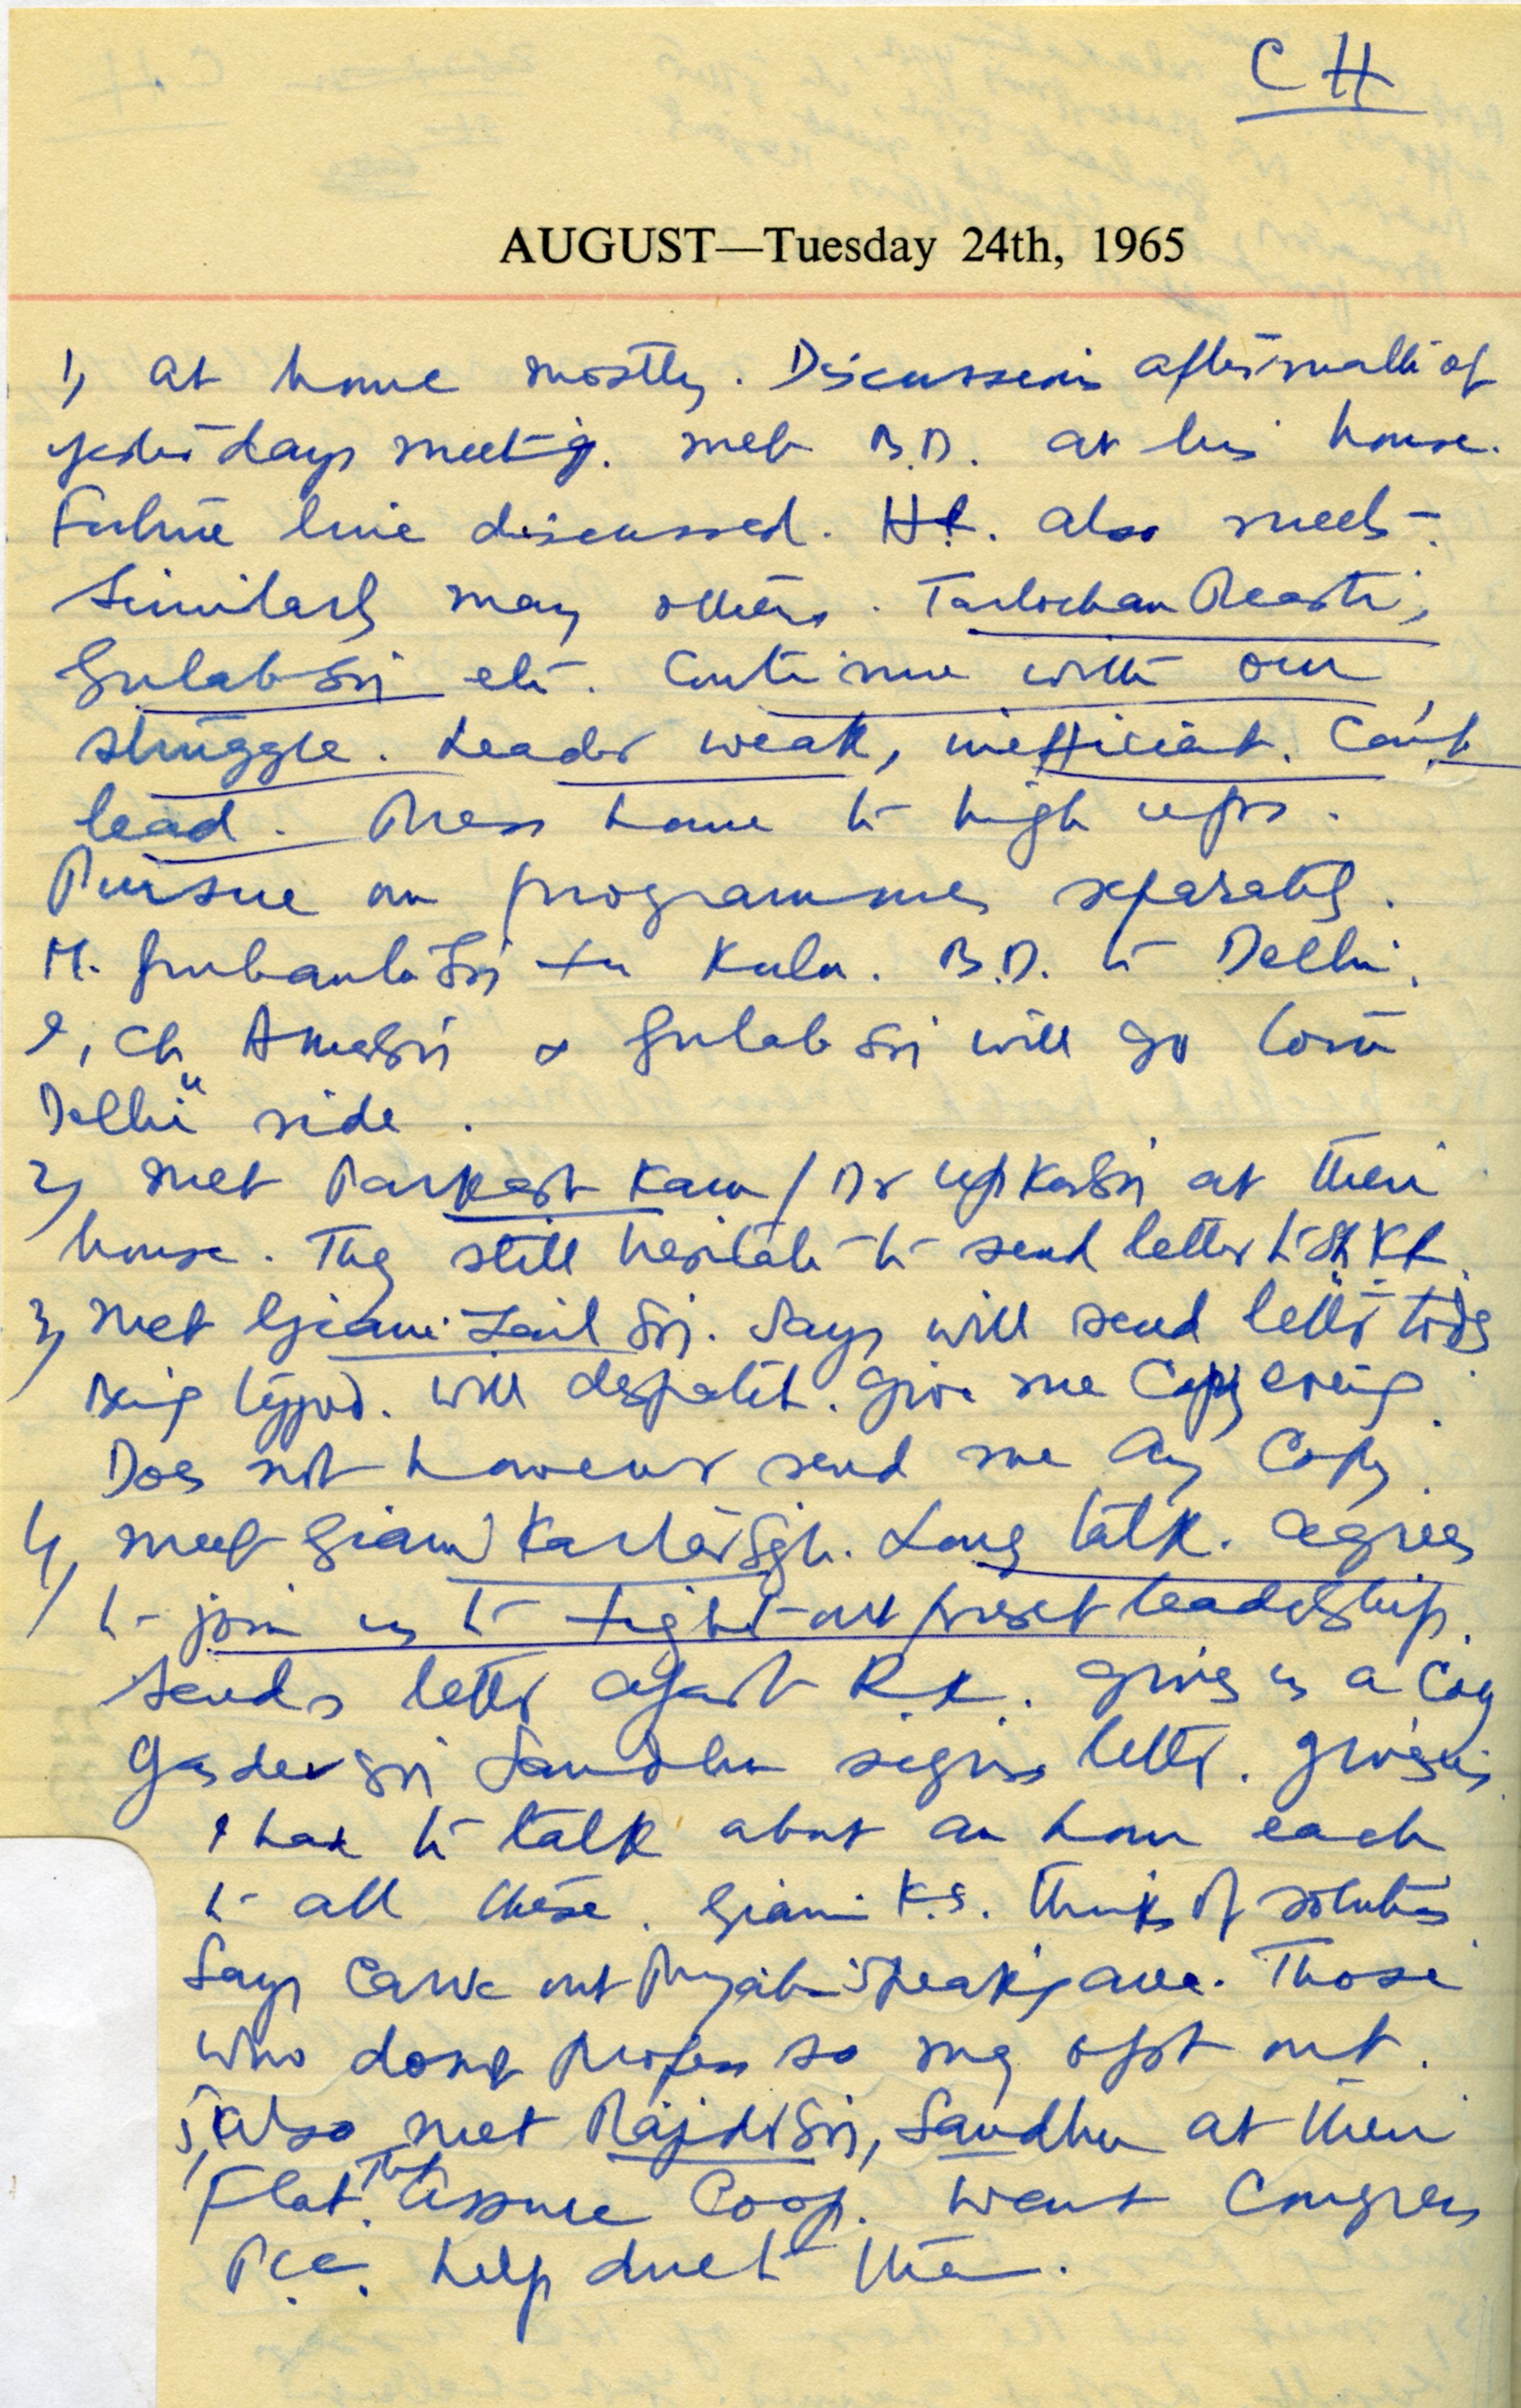 CH
AUGUST—Tuesday 24th, 1965
1) At home mostly. Discussions aftermath of
yesterdays meeting. Met B.D. at his house.
Future line discussed. also meets.
Similarly many others. Tarlochan Reasti,
Gulab Sgh etc. Continue with our
struggle. Leader weak, inefficient. Can't
lead. Press home to high ups.
Pursue our programmes separately.
M. Gurbanta Sgh for Kulu. B.D. to Delhi.
I, Ch & Gulab Sgh will go
Delhi side.
2) Met Parkash Kaur / Dr Upkar Sgh at their
house. They still hesitate to send letter to
3) Met Giani Zail Sgh. Says will send letter tody
Being typed. Will despatch. Give me copy evening.
Does not however send me any copy.
4) Meet Giani Kartar Sgh. Long talk. Agrees
to join us to fight out present leadership.
Sends letter against R.K. Gives us a copy
Sgh Sandhu signs letter.
I had to talk about an hour each
to all these. Giani K.S. thinks of solutions
Says carve out Punjabi speaking area. Those
who dont profess so may opt out.
5) Also met Rajdr Sgh, Sandhu at their
Flat. They assure Coop. Want Congress
help due to them.